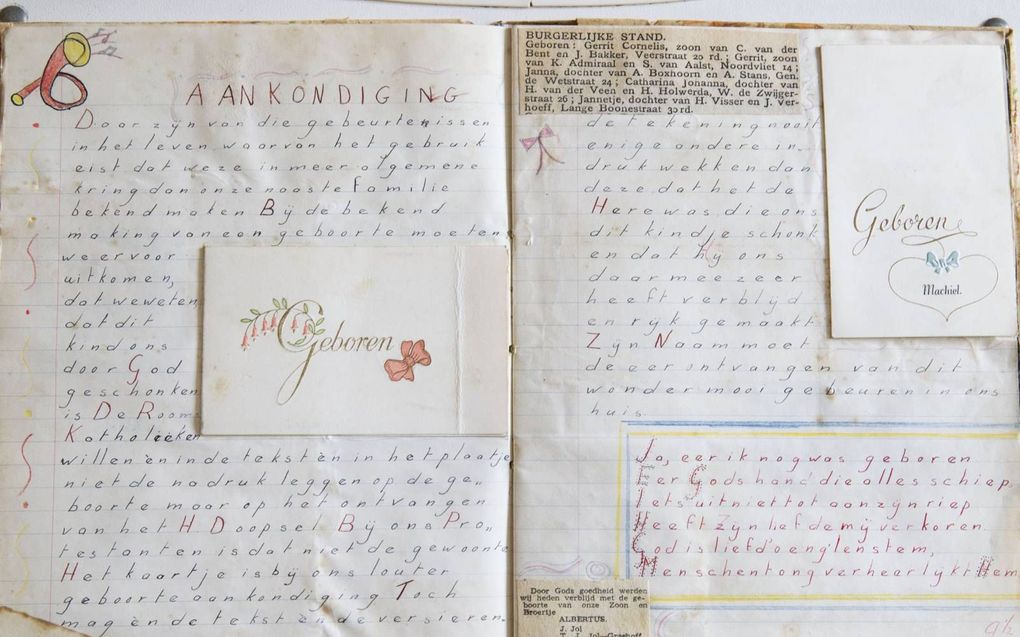 AANKONDIGING
Daar zyn van die gebeurtenissen
in het leven waarvan het gebruik
eist dat weze in meer algemene
kring dan onze naaste familie
bekend maken Bij de bekend
making van een geboorte moeten
we ervoor
uitkomen,
dat we weten
dat dit
kind ons
door God
geschonken
is De Rooms
Katholieken
willen en in de teksten in het plaatje
niet de nadruk leggen op de ge„
boorte maar op het ontvangen
van het H Doopsel Bij ons Pro„
testanten is dat niet de gewoonte
Het kaartje is bij ons louter
geboorte aankondiging Toch
mag en de tekst en de versieren.
Geboren
BURGERLIJKE STAND.
Geboren: Gerrit Cornelis, zoon van C. van der
Bent en J. Bakker, Veerstraat 20 rd.; Gerrit, zoon
van K. Admiraal en S. van Aalst, Noordvliet 14;
Janna, dochter van A. Boxhoorn en A. Stans, Gen.
de Wetstraat 24; Catharina Johanna, dochter van
H. van der Veen en H. Holwerda, W. de Zwijger-
straat 26; Jannetje, dochter van H. Visser en J. Ver-
hoeff, Lange Boonestraat 39 rd
de tekening nooit
enige andere in„
druk wekken dan
deze dat het de
Here was die ons
dit kindje schonk
en dat hij ons
daarmee zeer
heeft verblijd
en rijk gemaakt
Zijn Naam moet
de eer ontvangen van dit
wonder mooi gebeuren in ons
huis.
Geboren
Machiel.
Ja, eer ik nog was geboren
Eer Gods hand die alles schiep
Iets uit niet tot aanzyn riep
Heeft Zyn liefde mij verkoren
God is liefd o eng'lenstem,
Menschentong verheerlykt Hem
Door Gods goedheid werden
wij heden verblijd met de ge-
boorte van onze Zoon en
Broertje
ALBERTUS.
J. Jol
T. J. Jol—Grashoff